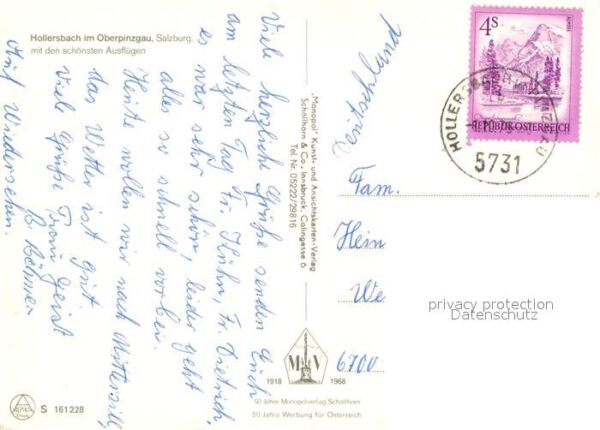 Hollersbach im Oberpinzgau, Salzburg,
mit den schönsten Ausflügen
Viele herzliche Grüße senden Euch
am letzten Tag Fr. Kühn, Fr. Dietrich,
es war sehr schön, leider geht
alles so schnell vorbei.
Heute wollen wir nach Mittersill,
das Wetter ist gut.
Viele Grüße Frau Geist
Auf Wiedersehen.
„Monopol" Kunst- und Ansichtskarten-Verlag
Schöllhorn & Co., Innsbruck, Colingasse 6
Tel Nr. 05222/29816
1918 M V 1968
50 Jahre Monopolverlag Schöllhorn
50 Jahre Werbung für Österreich
S 161228
Deutschland
Fam.
Hein
We
6700
privacy protection
Datenschutz
4S
REPUBLIK ÖSTERREICH
5731